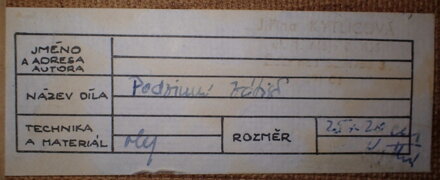 JMÉNO
A ADRESA
AUTORA
NÁZEV DÍLA Podzimní
TECHNIKA
A MATERIÁL olej
ROZMĚR 25 x 20 cm